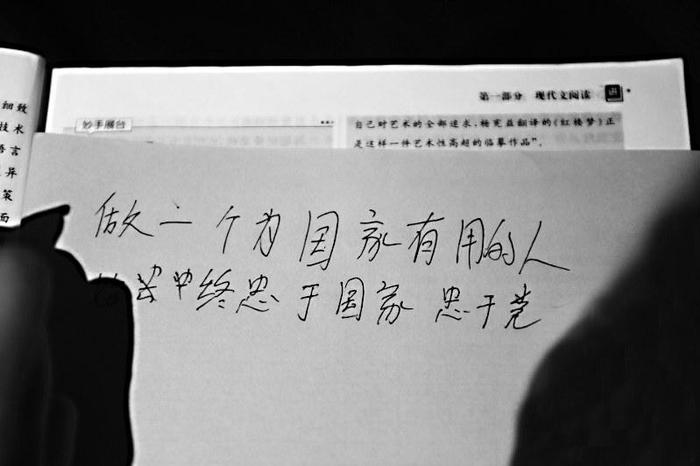 细致
技术
语言
异
策
面
第一部分 现代文阅读
妙手展台
自己对艺术的全部追求,杨宪益翻译的《红楼梦》正
是这样一件艺术性高超的临摹作品”。
做一个为国家有用的人
终忠于国家 忠于党